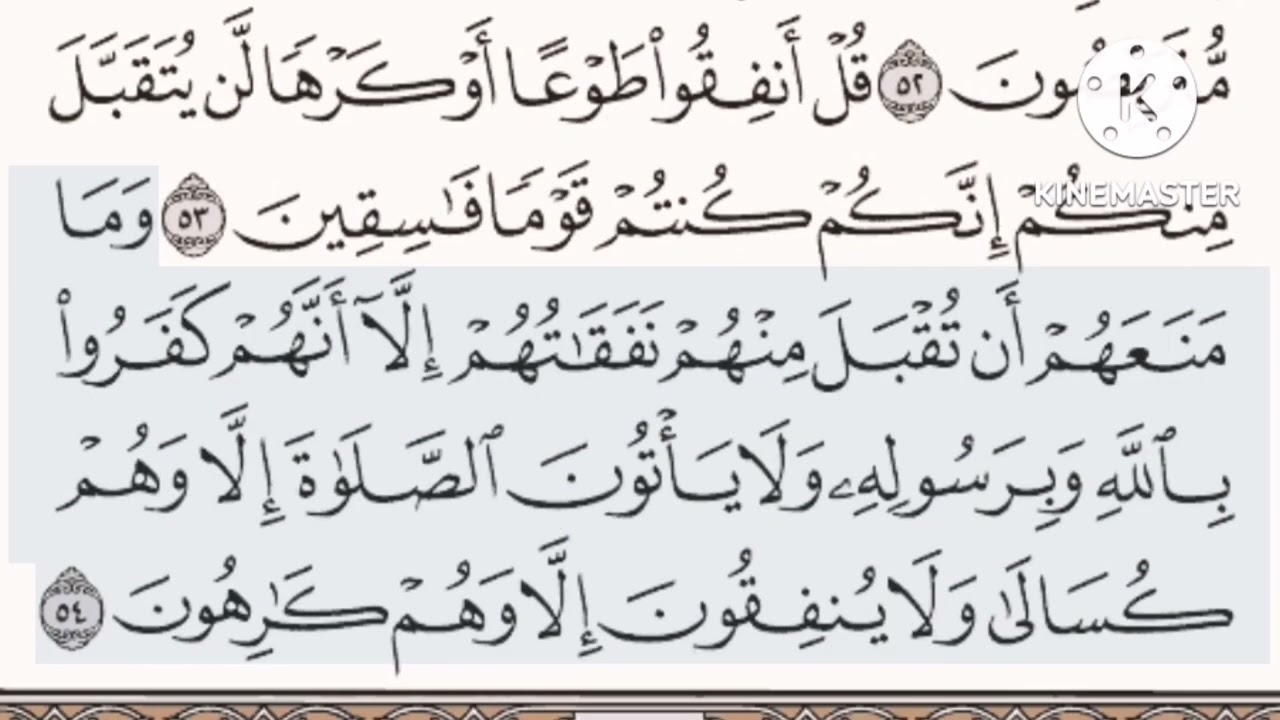 ونَ ٥٢ قُلۡ أَنفِقُواْ طَوۡعًا أَوۡ كَرۡهًا لَّن يُتَقَبَّلَ
مِنكُمۡ إِنَّكُمۡ كُنتُمۡ قَوۡمًا فَٰسِقِينَ ٥٣ وَمَا
KINEMASTER
مَنَعَهُمۡ أَن تُقۡبَلَ مِنۡهُمۡ نَفَقَٰتُهُمۡ إِلَّآ أَنَّهُمۡ كَفَرُواْ
بِٱللَّهِ وَبِرَسُولِهِۦ وَلَا يَأۡتُونَ ٱلصَّلَوٰةَ إِلَّا وَهُمۡ
كُسَالَىٰ وَلَا يُنفِقُونَ إِلَّا وَهُمۡ كَٰرِهُونَ ٥٤